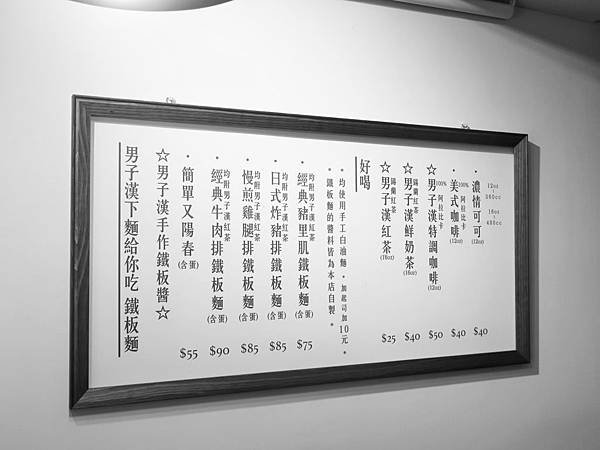 12oz
360cc
16oz
480cc
・濃情可可(12oz) $40
・美式咖啡(12oz) $40
100% 阿拉比卡
☆男子漢特調咖啡(12oz) $50
100% 阿拉比卡
☆男子漢鮮奶茶(16oz) $40
錫蘭紅茶
☆男子漢紅茶(16oz) $25
錫蘭紅茶
好喝
・均使用手工白油麵。・加起司加10元。
・鐵板麵的醬料皆為本店自製。
・經典豬里肌鐵板麵(含蛋) $75
均附男子漢紅茶
・日式炸豬排鐵板麵(含蛋) $85
均附男子漢紅茶
・慢煎雞腿排鐵板麵(含蛋) $85
均附男子漢紅茶
・經典牛肉排鐵板麵(含蛋) $90
均附男子漢紅茶
・簡單又陽春(含蛋) $55
☆男子漢手作鐵板醬☆
男子漢下麵給你吃 鐵板麵